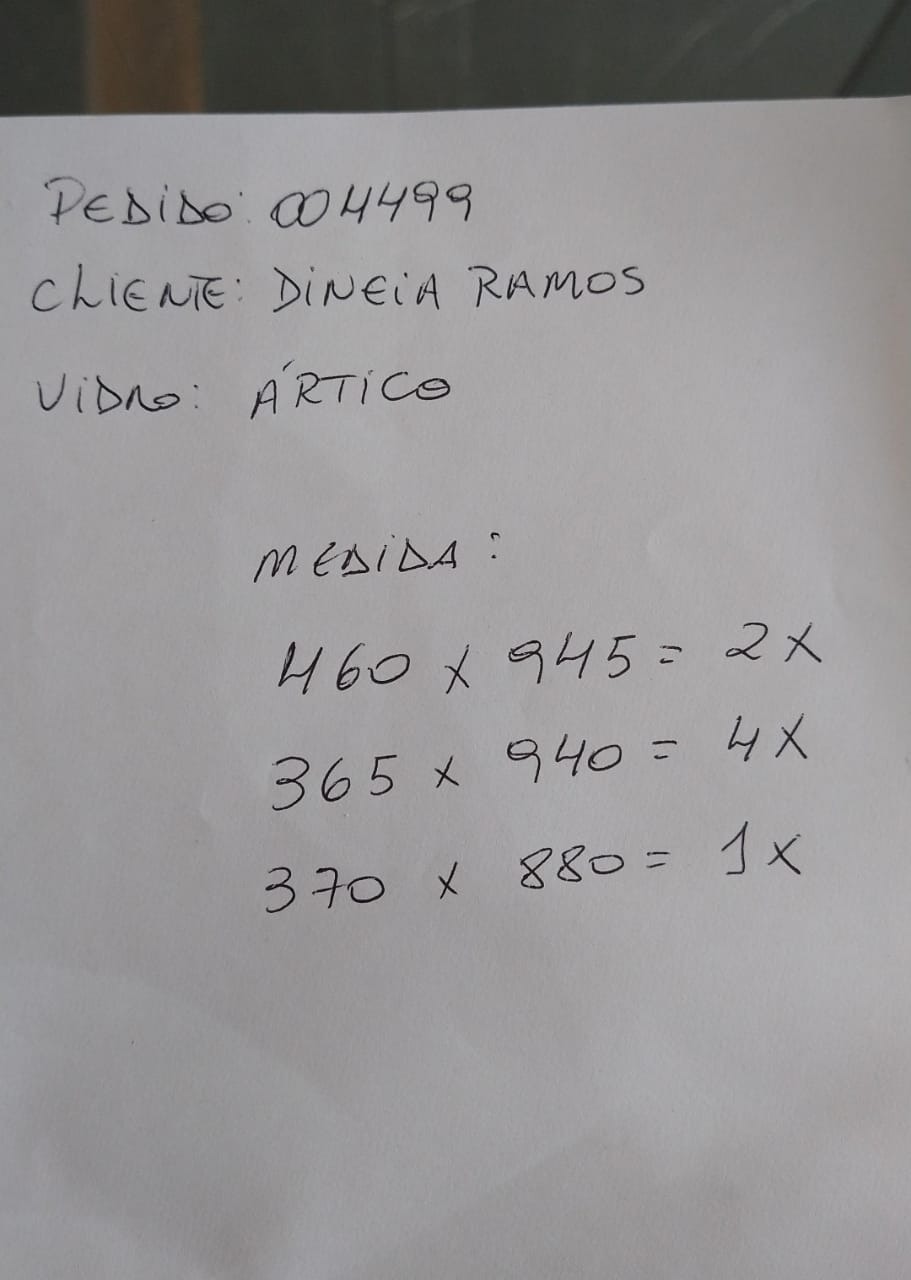 PEDIDO: 004499
CLIENTE: DINEIA RAMOS
VIDRO: ÁRTICO
MEDIDA:
460 x 945 = 2x
365 x 940 = 4x
370 x 880 = 1x